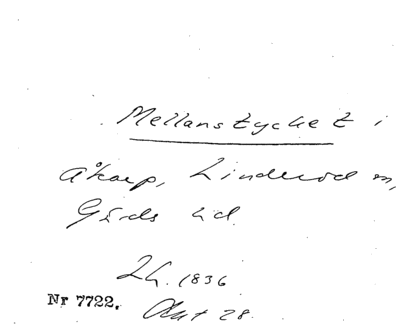 Mellanstycket i
Åkarp, Linderöd sn,
Gärds hd.
Lh. 1836
Nr 7722. Akt 28